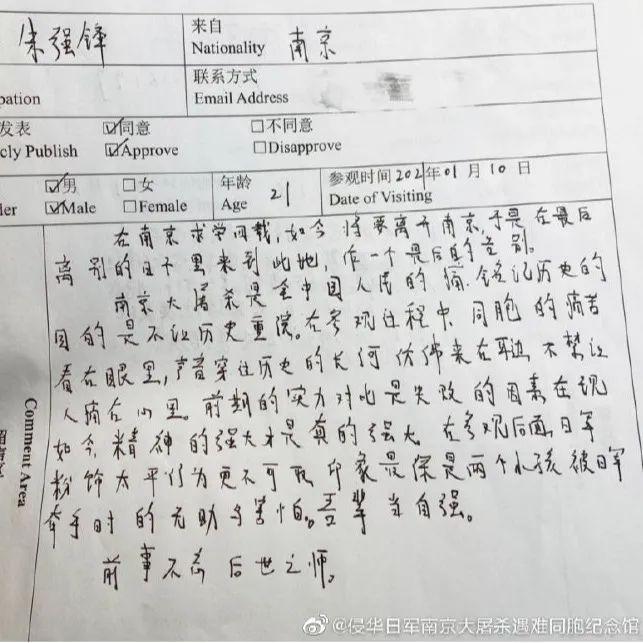 朱强锋
来自
Nationality 南京
pation
联系方式
Email Address
发表 ☑同意 □不同意
cly Publish ☑Approve □Disapprove
☑男 □女 年龄 21 参观时间 2021年01月10日
der ☑Male □Female Age Date of Visiting
在南京求学四载,如今将要离开南京,于是在最后
离别的日子里来到此地,作一个最后的告别。
南京大屠杀是全中国人民的痛,铭记历史的
目的是不让历史重演。在参观过程中,同胞的痛苦
看在眼里,声音穿过历史的长河仿佛来在耳边,不禁让
人痛在心里。前期的实力对比是失败的因素在现
如今,精神的强大才是真的强大。在参观后面,日军
粉饰太平行为更不可取,印象最深是两个小孩被日军
牵手时的无助与害怕。吾辈当自强。
前事不忘后世之师。
Comment Area
@侵华日军南京大屠杀遇难同胞纪念馆